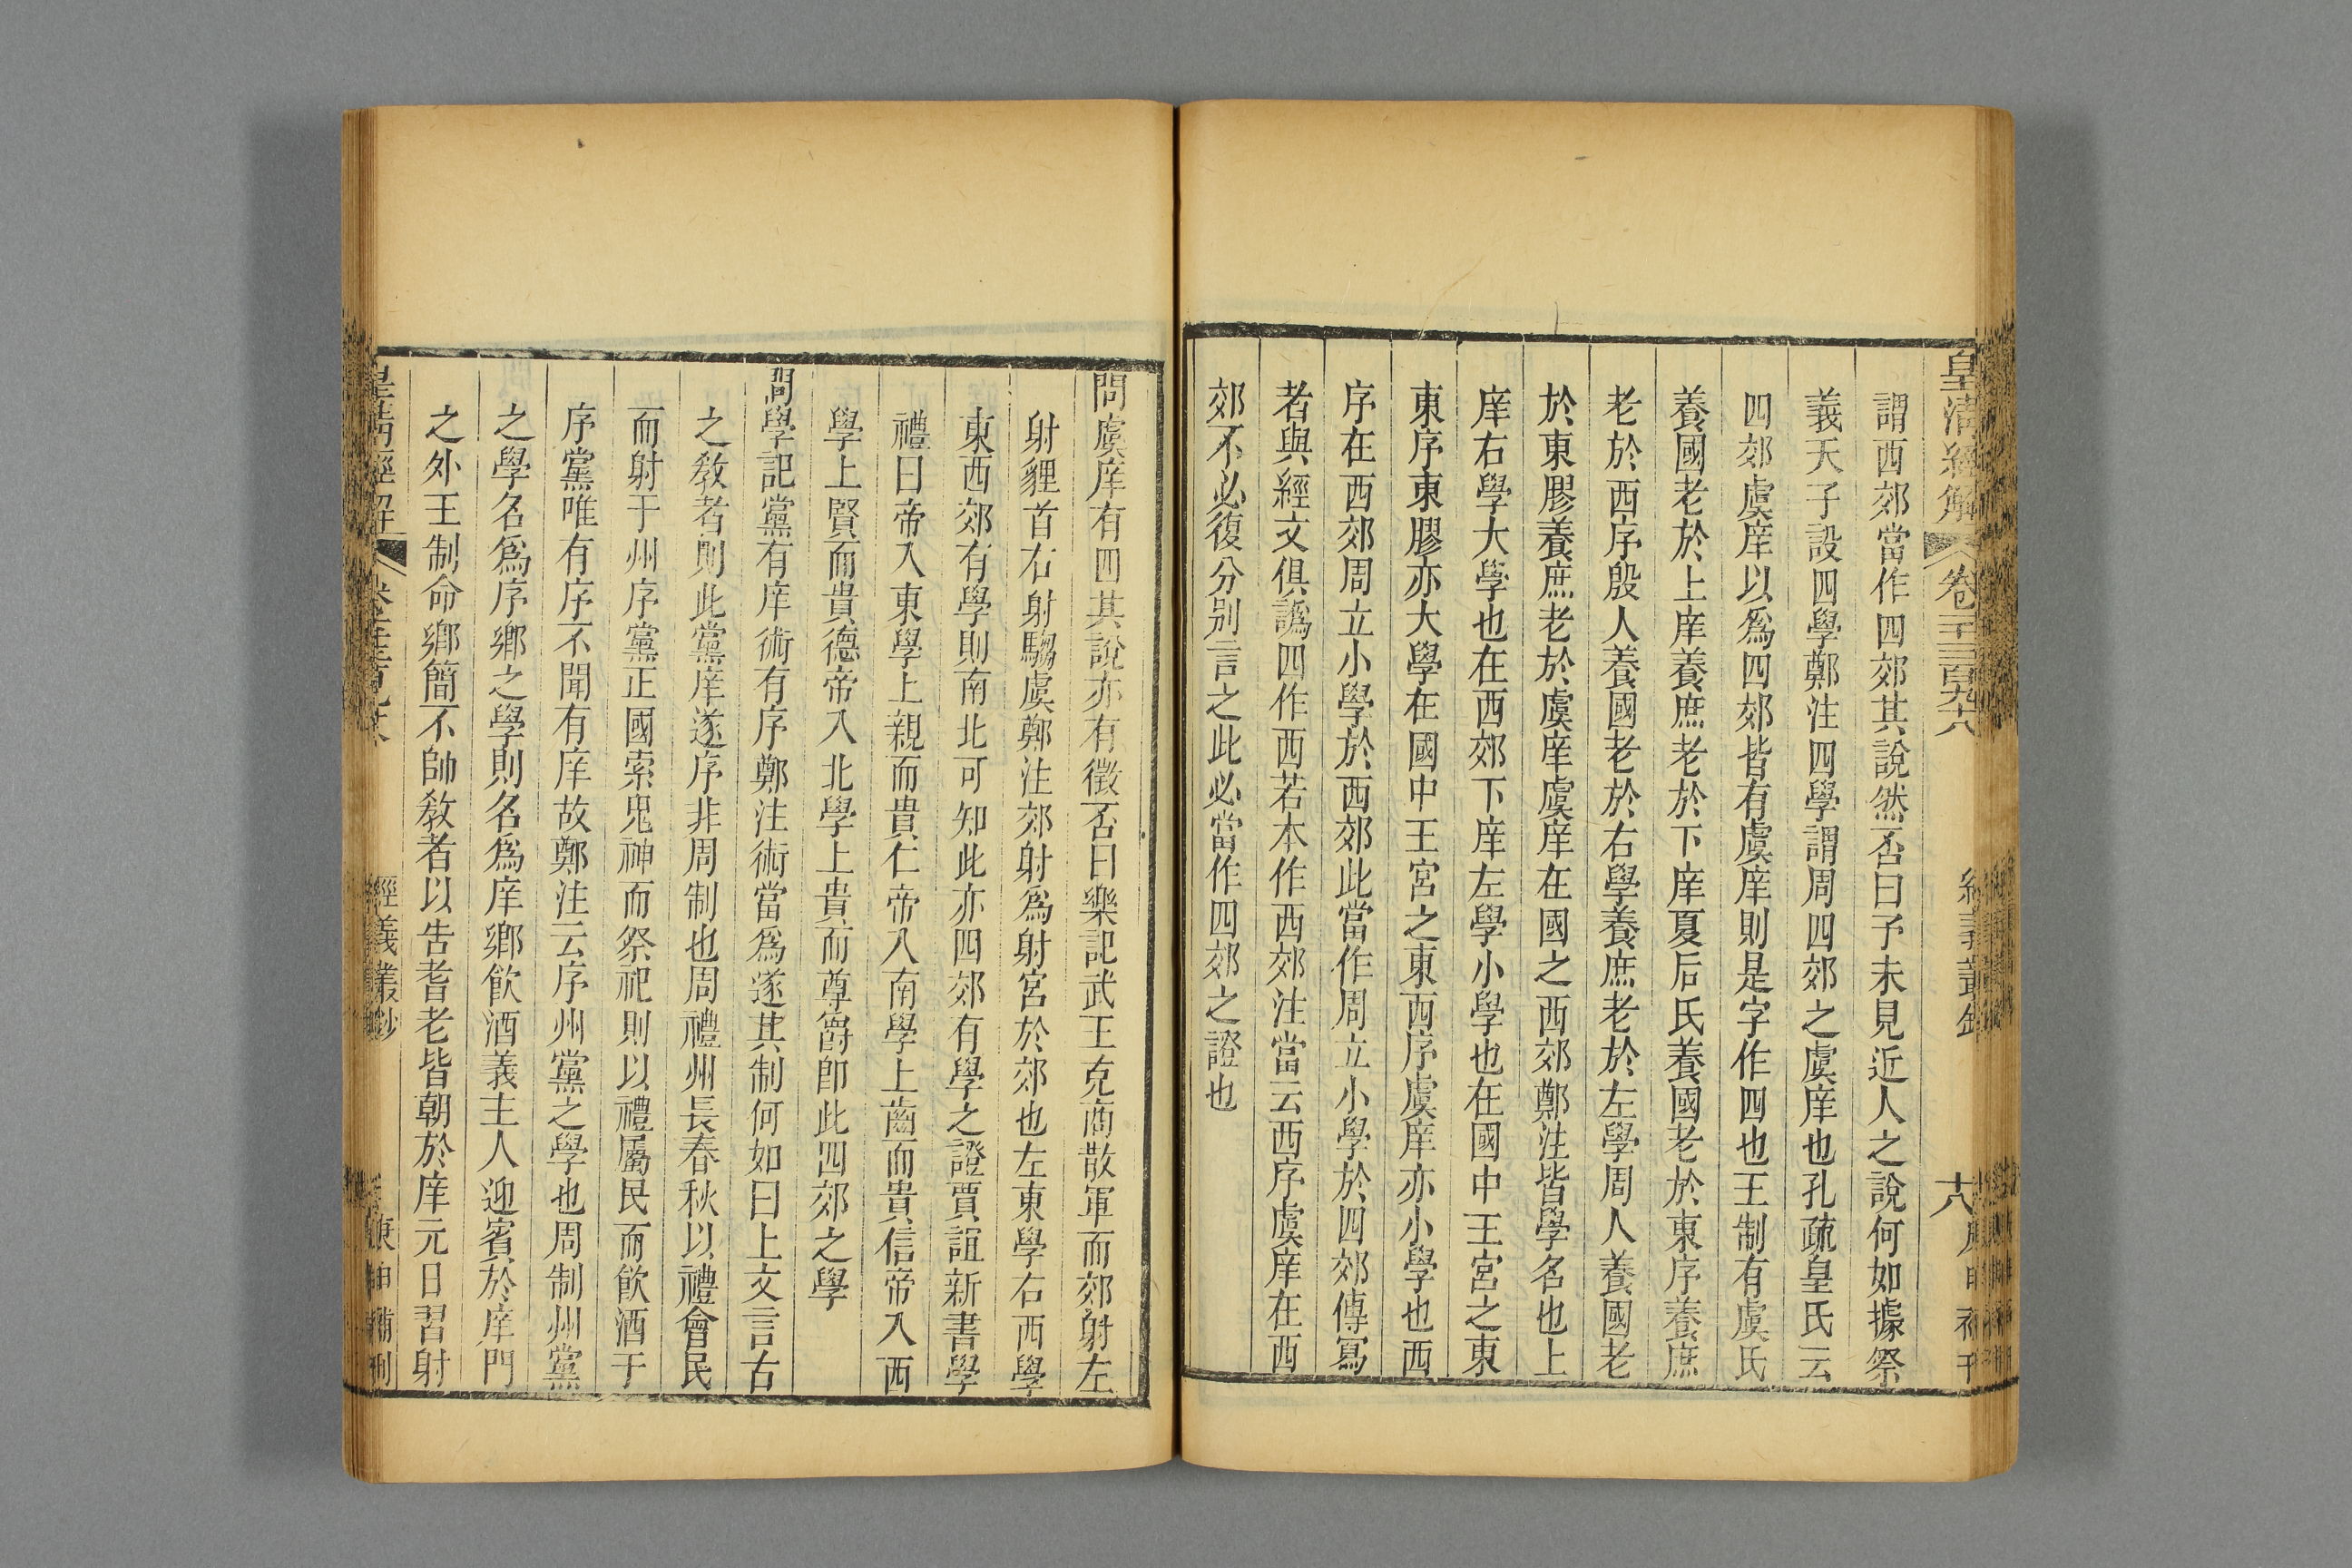 皇清經解 卷一千三百九十八 十八
謂西郊當作四郊其說然否曰予未見近人之說何如據祭
義天子設四學鄭注四學謂周四郊之虞庠也孔疏皇氏云
四郊虞庠以爲四郊皆有虞庠則是字作四也王制有虞氏
養國老於上庠養庶老於下庠夏后氏養國老於東序養庶
老於西序殷人養國老於右學養庶老於左學周人養國老
於東膠養庶老於虞庠虞庠在國之西郊鄭注皆學名也上
庠右學大學也在西郊下庠左學小學也在國中王宮之東
東序東膠亦大學在國中王宮之東西序虞庠亦小學也西
序在西郊周立小學於西郊此當作周立小學於四郊傳寫
者與經文俱譌四作西若本作西郊注當云西序虞庠在西
郊不必復分別言之此必當作四郊之證也
問虞庠有四其說亦有徵否曰樂記武王克商散軍而郊射左
射貍首右射騶虞鄭注郊射爲射宮於郊也左東學右西學
東西郊有學則南北可知此亦四郊有學之證賈誼新書學
禮曰帝入東學上親而貴仁帝入南學上齒而貴信帝入西
學上賢而貴德帝入北學上貴而尊爵即此四郊之學
問學記黨有庠術有序鄭注術當爲遂其制何如曰上文言古
之教者則此黨庠遂序非周制也周禮州長春秋以禮會民
而射于州序黨正國索鬼神而祭祀則以禮屬民而飲酒于
序黨唯有序不聞有庠故鄭注云序州黨之學也周制州黨
之學名爲序鄉之學則名爲庠鄉飲酒義主人迎賓於庠門
之外王制命鄉簡不帥教者以告耆老皆朝於庠元日習射
皇清經解 經義叢鈔 庚申補刊